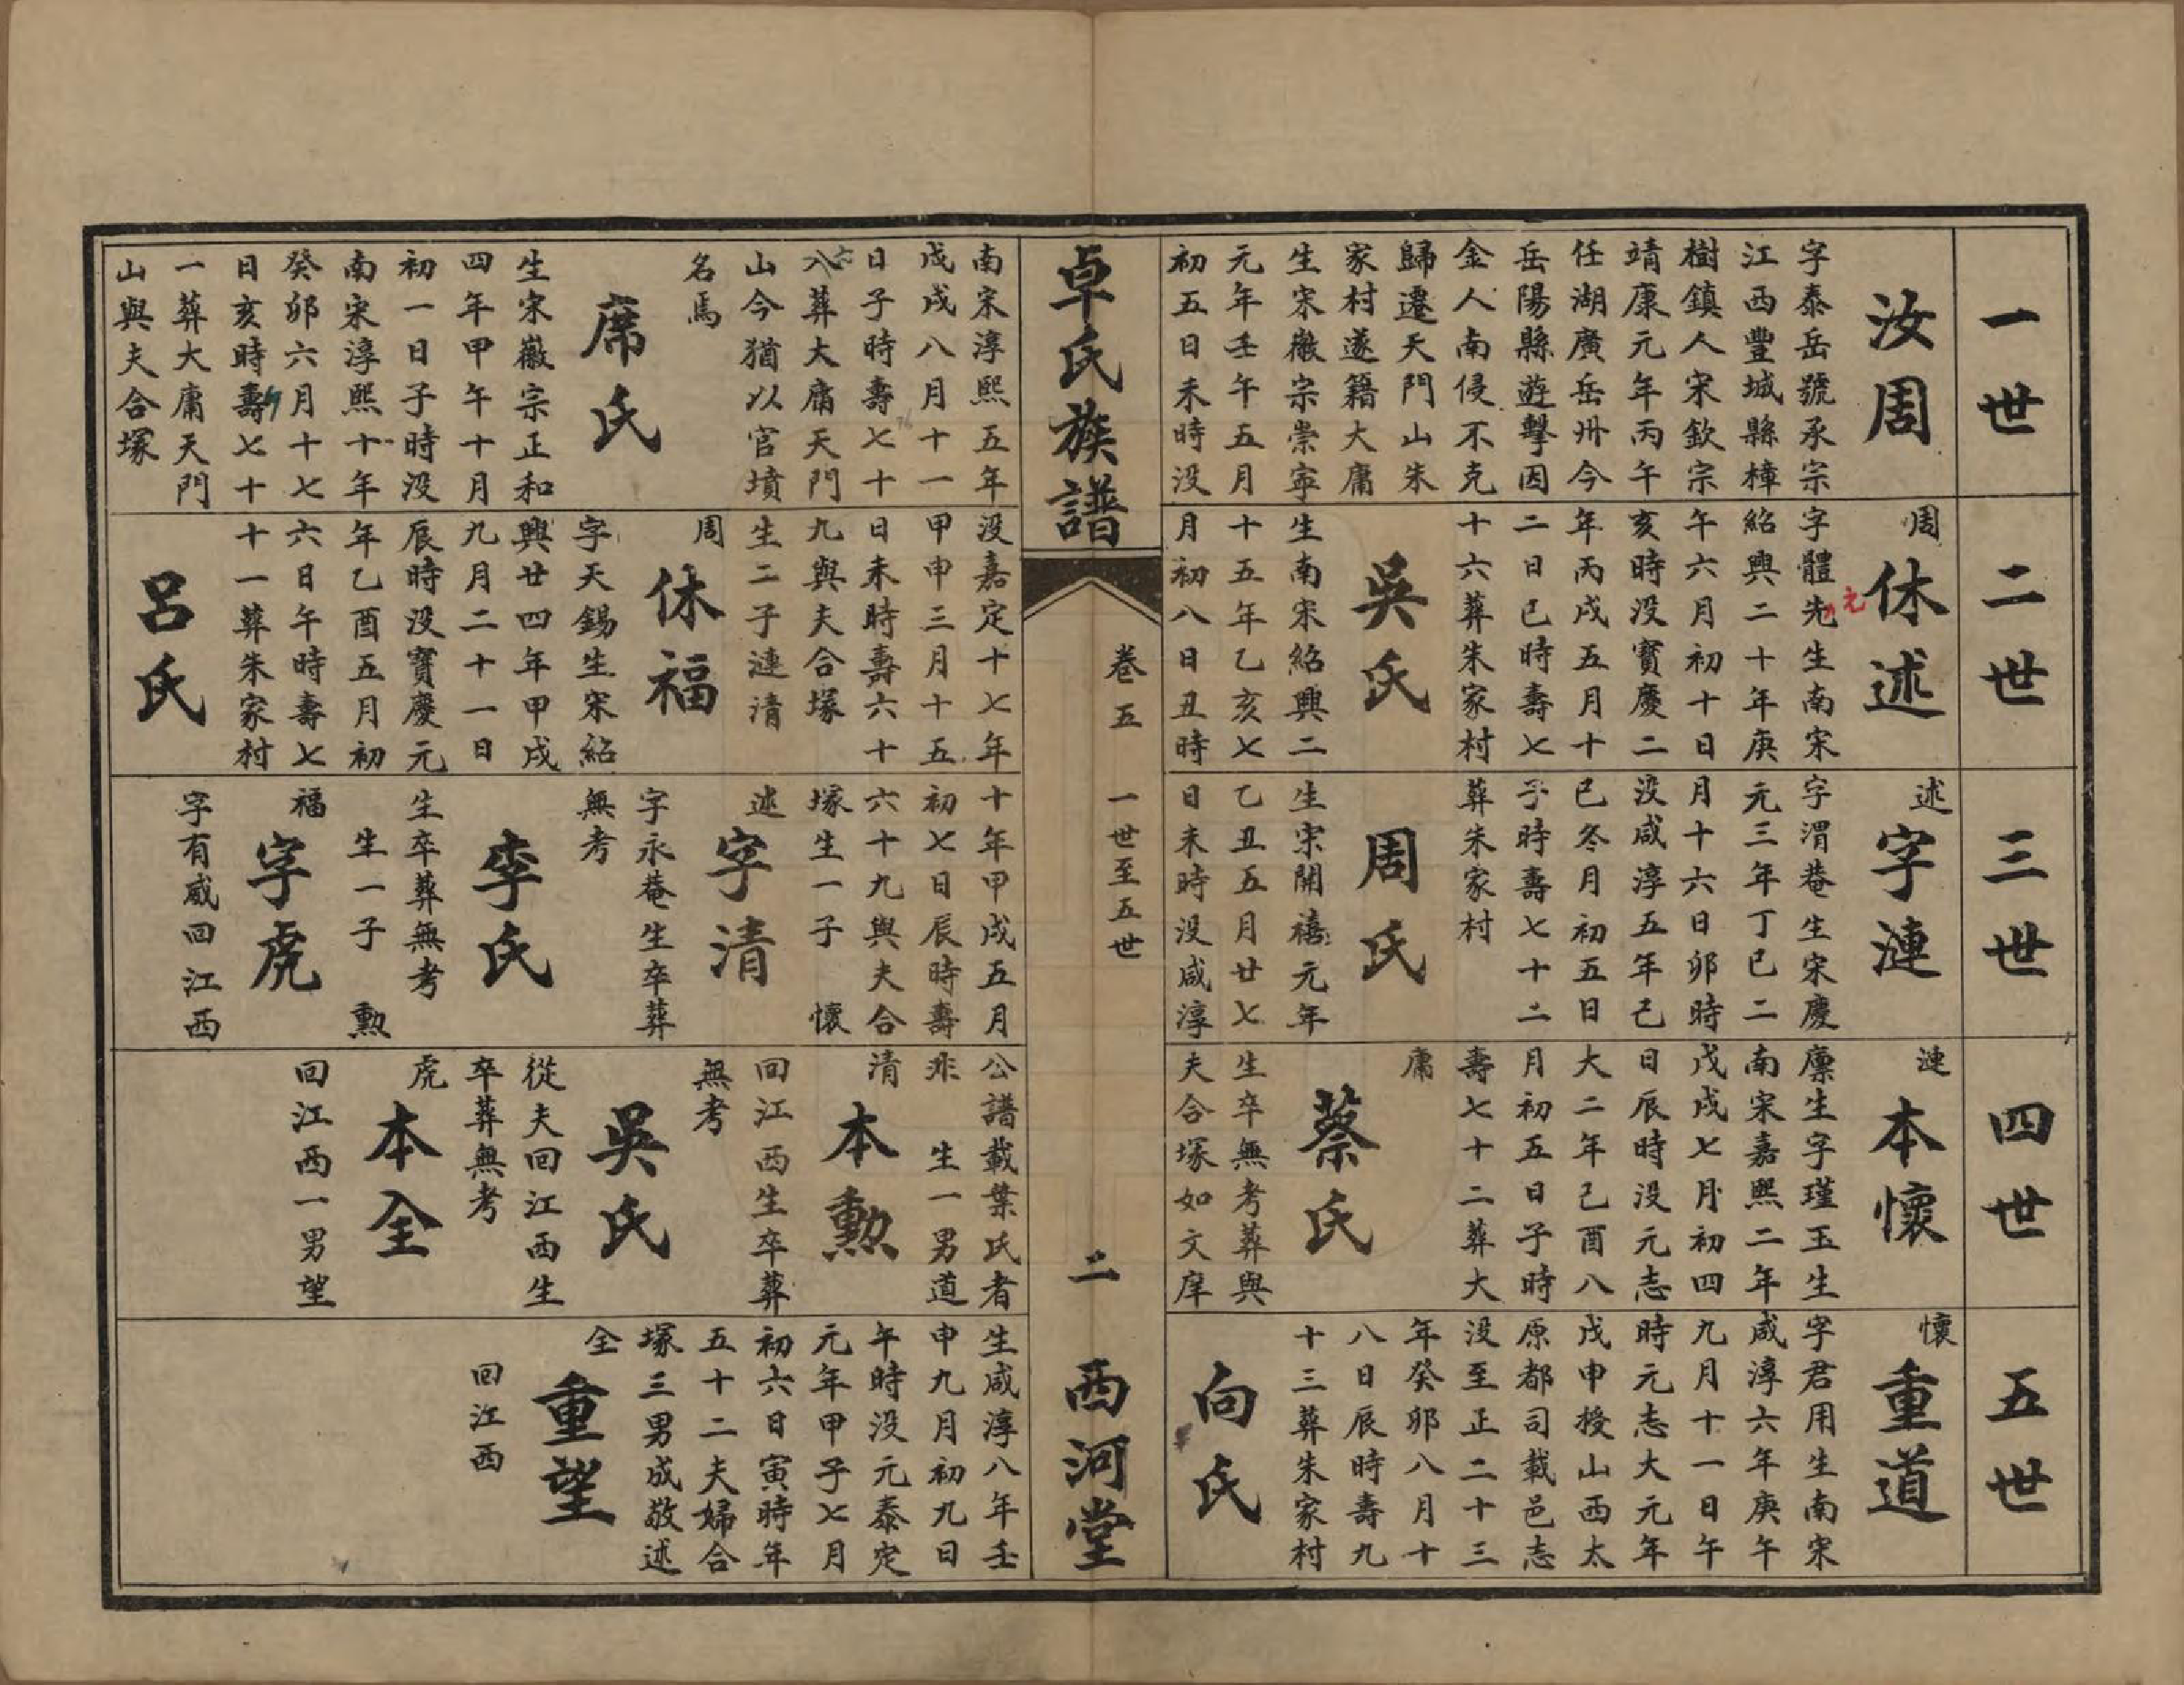 一世
汝周
字泰岳號承宗
江西豐城縣樟
樹鎮人宋欽宗
靖康元年丙午
任湖廣岳州今
岳陽縣遊擊因
金人南侵不克
歸遷天門山朱
家村遂籍大庸
生宋徽宗崇寧
元年壬午五月
初五日未時没
南宋淳熙五年
戊戌八月十一
日子時壽七十
六
八葬大庸天門
山今猶以官墳
名焉
席氏
生宋徽宗正和
四年甲午十月
初一日子時没
南宋淳熙十年
癸卯六月十七
日亥時壽七十
一葬大庸天門
山與夫合塚
二世
周
休述
字體先生南宋
元
紹興二十年庚
午六月初十日
亥時没寶慶二
年丙戌五月十
二日巳時壽七
十六葬朱家村
吳氏
生南宋紹興二
十五年乙亥七
月初八日丑時
没嘉定十七年
甲申三月十五
日未時壽六十
九與夫合塚
生二子漣清
周
休福
字天錫生宋紹
興廿四年甲戌
九月二十一日
辰時没寶慶元
年乙酉五月初
六日午時壽七
十一葬朱家村
呂氏
三世
述
字漣
字渭菴生宋慶
元三年丁巳二
月十六日卯時
没咸淳五年己
巳冬月初五日
子時壽七十二
葬朱家村
周氏
生宋開禧元年
乙丑五月廿七
日未時没咸淳
十年甲戌五月
初七日辰時壽
六十九與夫合
塚生一子 懷
述
字清
字永菴生卒葬
無考
李氏
生卒葬無考
生一子 勲
福
字虎
字有威回江西
四世
漣
本懷
廪生字瑾玉生
南宋嘉熙二年
戊戌七月初四
日辰時没元志
大二年己酉八
月初五日子時
壽七十二葬大
庸
蔡氏
生卒無考葬與
夫合塚如文庠
公譜載葉氏者
非 生一男道
清
本勲
回江西生卒葬
無考
吳氏
從夫回江西生
卒葬無考
虎
本全
回江西一男望
五世
懷
重道
字君用生南宋
咸淳六年庚午
九月十一日午
時元志大元年
戊申授山西太
原都司載邑志
没至正二十三
年癸卯八月十
八日辰時壽九
十三葬朱家村
向氏
生咸淳八年壬
申九月初九日
午時没元泰定
元年甲子七月
初六日寅時年
五十二夫婦合
塚三男成敬述
全
重望
回江西
卓氏族譜
卷五 一世至五世
二
西河堂